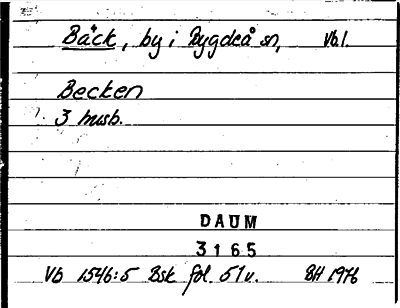 Bäck, by i Bygdeå sn, Vbl.
Becken
3 husb.
DAUM
3165
Vb 1546:5 Bsk fol. 51v. BH 1976